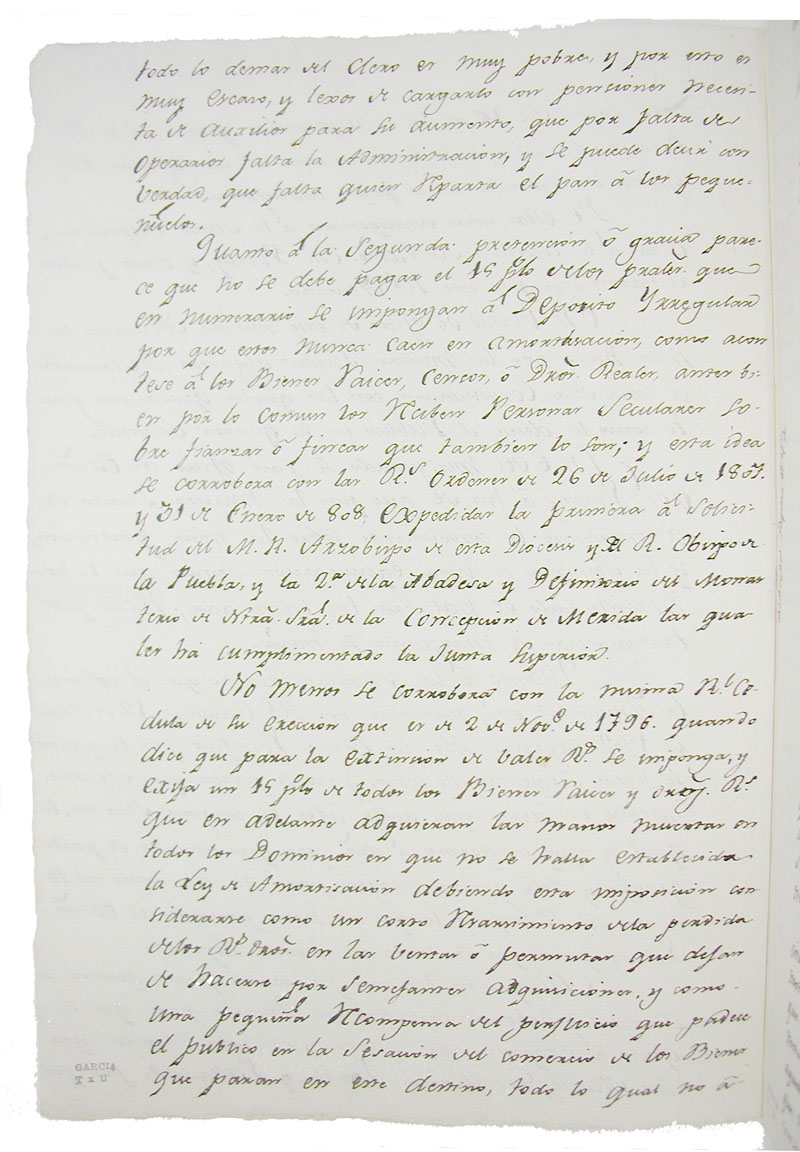 todo lo demas del Clero es muy pobre, y por esto es
muy escaso, y lexos de cargarlo con penciones necesi-
ta de auxilios para su aumento, que por falta de
Operarios falta la Administracion, y se puede decir con
verdad, que falta quien reparta el pan â los peque-
ñuelos.
Quanto â la segunda pretencion ô gracia pare-
ce que no se debe pagar el 15 p%o de los prâles. que
en numerario se impongan â Deposito Yrregular
por que estos nunca caen en amortisacion, como acon
tese â los Bienes Raices, Cencos, ô Drôs. Reales, antes bi-
en por lo comun los reciben Personas Seculares so-
bre fianzas ô fincas que tambien lo son; y esta idea
se corrobora con las Rs. Ordenes de 26 de Julio de 1807.
y 31 de Enero de 808. expedidas la primera â solici-
tud del M. R. Arzobispo de esta Diocesis y del R. Obispo de
la Puebla, y la 2.a de la Abadesa y Definitorio del Monas
terio de Ntrâ. Srâ. de la Concepcion de Merida las qua
les ha cumplimentado la Junta Superior.
No menos se corrobora con la misma Rl. Ce-
dula de su ereccion que es de 2 de Nove. de 1796. quando
dice que para la extincion de vales Rs. se imponga, y
exija un 15 p%o de todos los Bienes Raices y drôs. Rs.
que en adelante adquieran las manos muertas en
todos los Dominios en que no se halla establecida
la Ley de Amortisacion debiendo esta imposicion con
siderarse como un corto resarcimiento de la perdida
de los Rs. Drôs. en las ventas ô permutas que dejan
de hacerse por semejantes adquiciciones, y como
una pequeña recompensa del perjuicio que padece
el publico en la sesacion del comercio de los Bienes
que paran en este destino, todo lo qual no â
GARCIA